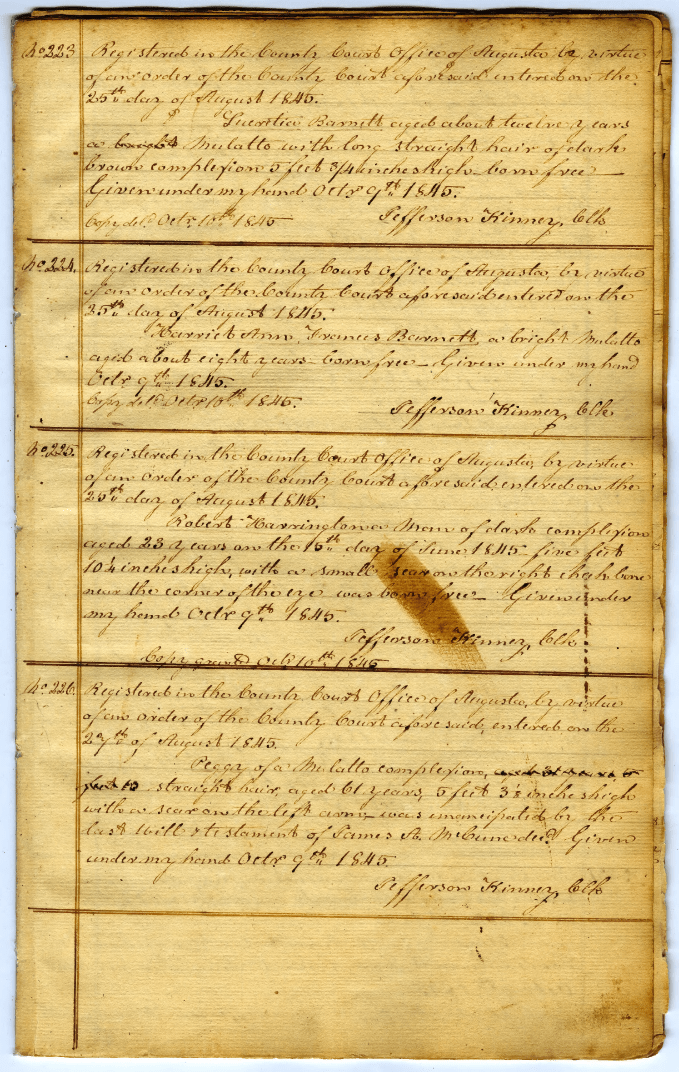 No 223 Registered in the County Court Office of Augusta by virtue
of an order of the County Court aforesaid entered on the
25th day of August 1845.
Lucretia Barnett aged about twelve years
a bright Mulatto with long straight hair of dark
brown complexion 5 feet 3/4 inches high born free
Given under my hand Octr 9th 1845.
Copy deld Octr 10th 1845 Jefferson Kinney Clk
No 224. Registered in the County Court Office of Augusta, by virtue
of an order of the County Court aforesaid entered on the
25th day of August 1845.
Harriet Ann Frances Barnett, a bright Mulatto
aged about eight years born free Given under my hand
Octr 9th 1845.
Copy deld Octr 10th 1845. Jefferson Kinney Clk
No 225. Registered in the County Court Office of Augusta, by virtue
of an order of the County Court aforesaid, entered on the
25th day of August 1845.
Robert Harrington a Man of dark complexion
aged 23 years on the 15th day of June 1845 five feet
10 1/4 inches high, with a small scar on the right cheek bone
near the corner of the eye was born free Given under
my hand Octr 9th 1845.
Jefferson Kinney Clk
Copy Octr 10th 1845
No 226. Registered in the County Court Office of Augusta, by virtue
of an order of the County Court aforesaid, entered on the
27th of August 1845.
Peggy of a Mulatto complexion, aged 31 years 5
feet 10 straight hair, aged 61 years, 5 feet 3 1/2 inches high
with a scar on the left arm was emancipated by the
last Will & testament of James A. McCune decd Given
under my hand Octr 9th 1845
Jefferson Kinney Clk